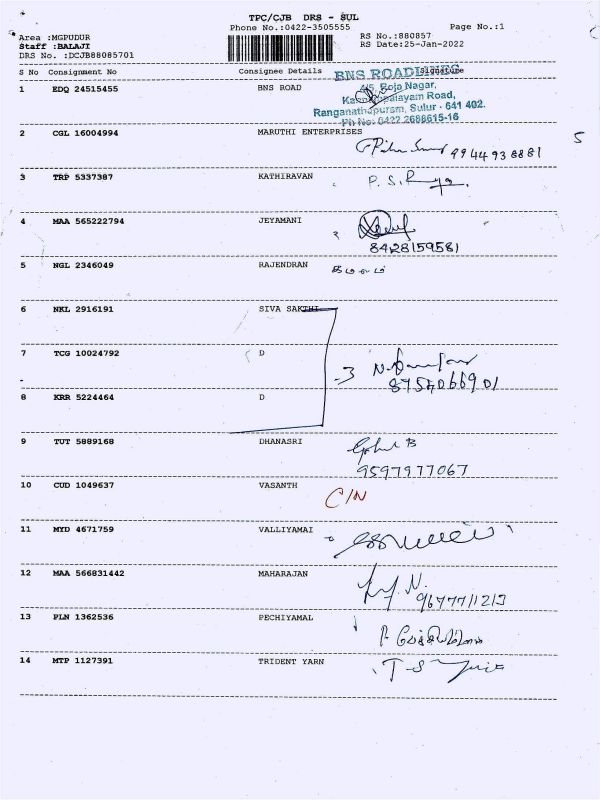 TPC/CJB DRS - SUL
Phone No.:0422-3505555 Page No.:1
Area :MGPUDUR RS No.:880857
Staff :BALAJI RS Date:25-Jan-2022
DRS No. :DCJB88085701
S No Consignment No Consignee Details Signature
BNS ROADLINES
1 EDQ 24515455 BNS ROAD
4/5, Roja Nagar,
Road,
Ranganathapuram, Sulur - 641 402.
Ph No: 0422 2688615-16
2 CGL 16004994 MARUTHI ENTERPRISES
9944938881
5
3 TRP 5337387 KATHIRAVAN P. S.
4 MAA 565222794 JEYAMANI
8428159581
5 NGL 2346049 RAJENDRAN கமலம்
6 NKL 2916191 SIVA SAKTHI
7 TCG 10024792 D
-3
8754066901
8 KRR 5224464 D
9 TUT 5889168 DHANASRI
9597977067
10 CUD 1049637 VASANTH C/N
11 MYD 4671759 VALLIYAMAI
12 MAA 566831442 MAHARAJAN
13 PLN 1362536 PECHIYAMAL
14 MTP 1127391 TRIDENT YARN